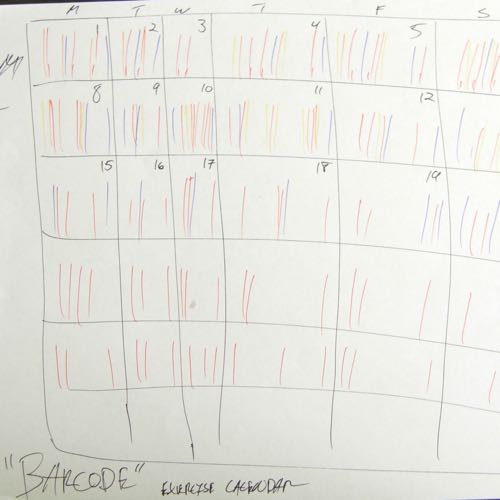 M T W T F S
1 2 3 4 5
8 9 10 11 12
15 16 17 18 19
"BARCODE" EXERCISE CALENDAR